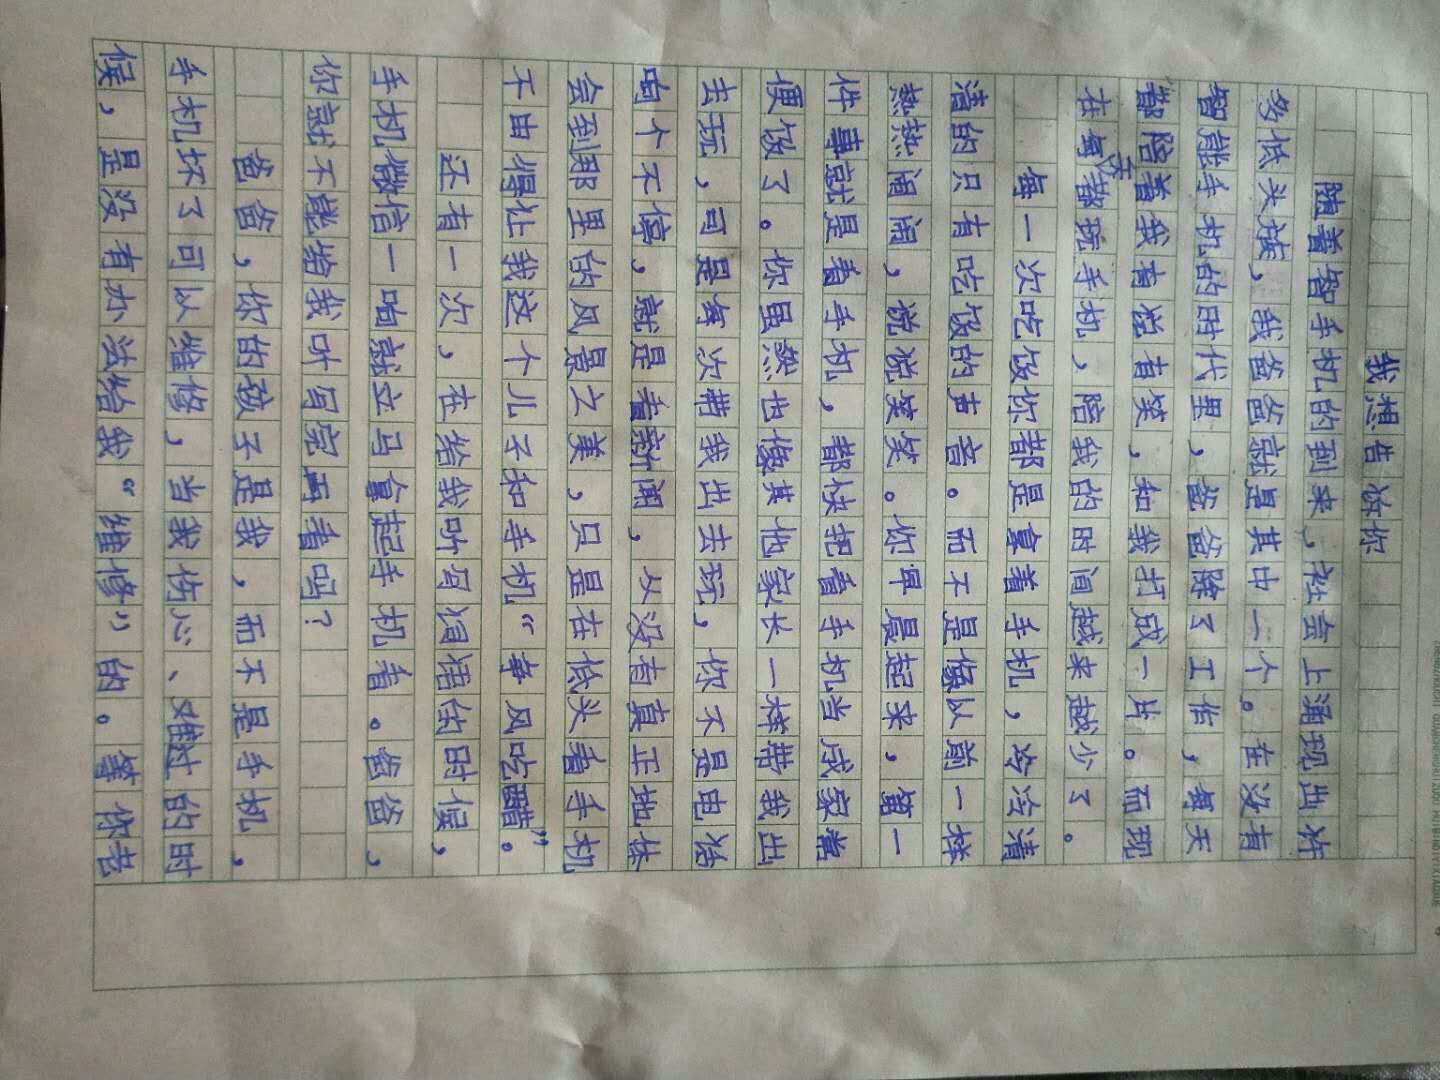 我想告诉你
随着智手机的到来，社会上涌现出许
多低头族，我爸爸就是其中一个。在没有
智能手机的时代里，爸爸除了工作，每天
都陪着我有说有笑，和我打成一片。而现
在每天都玩手机，陪我的时间越来越少了。
每一次吃饭你都是拿着手机，冷冷清
清的只有吃饭的声音。而不是像从前一样
热热闹闹，说说笑笑。你早晨起来，第一
件事就是看手机，都快把看手机当成家常
便饭了。你虽然也像其他家长一样带我出
去玩，可是每次带我出去玩，你不是电话
响个不停，就是看新闻，从没有真正地体
会到那里的风景之美，只是在低头看手机
不由得让我这个儿子和手机“争风吃醋”。
还有一次，在给我听写词语的时候，
手机微信一响就立马拿起手机看。爸爸，
你就不能给我听写完再看吗？
爸爸，你的孩子是我，而不是手机，
手机坏了可以维修，当我伤心、难过的时
候，是没有办法给我“维修”的。等你老